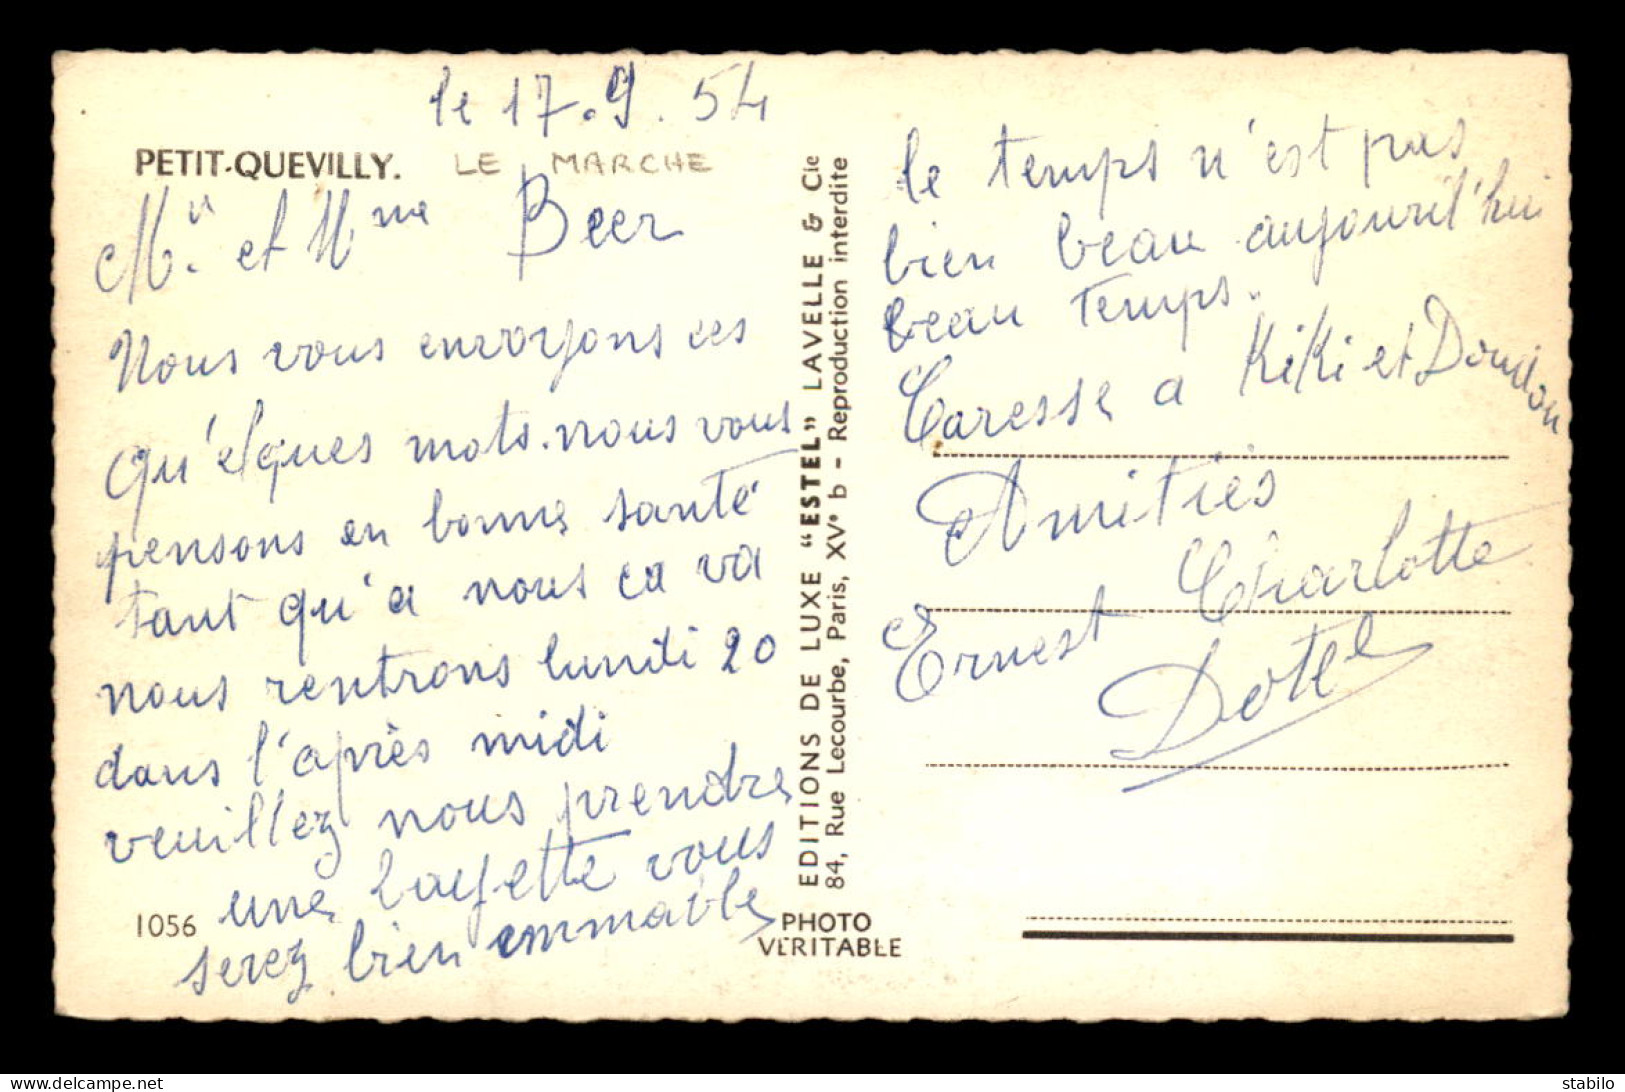 le 17.9.54
PETIT-QUEVILLY. LE MARCHE
Mr. et Mme Beer
Nous vous envoyons ces
qu'elques mots. nous vous
pensons en bonne santé
tant qu'a nous ca va
nous rentrons lundi 20
dans l'après midi
veuill'ez nous prendre
une bayette vous
serez bien emmable
1056
EDITIONS DE LUXE "ESTEL" LAVELLE & Cie
84, Rue Lecourbe, Paris, XVe b - Reproduction interdite
PHOTO
VERITABLE
le temps n'est pas
bien beau aujourd'hui
beau temps.
Caresse a KiKi et Doudou
Amitiés
Ernest Charlotte
Dotel
delcampe.net
stabilo